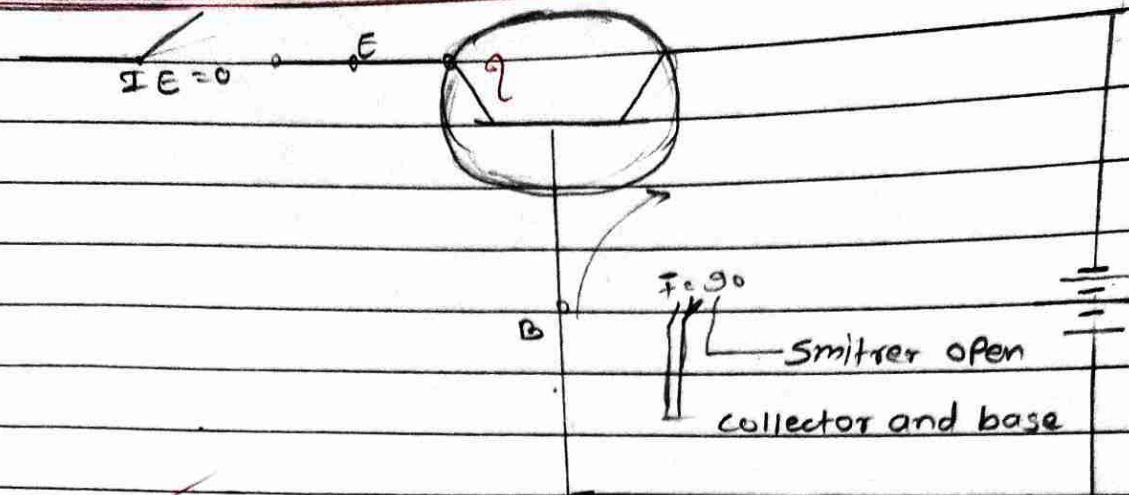 E
IE=0
B
Smitrer open
collector and base